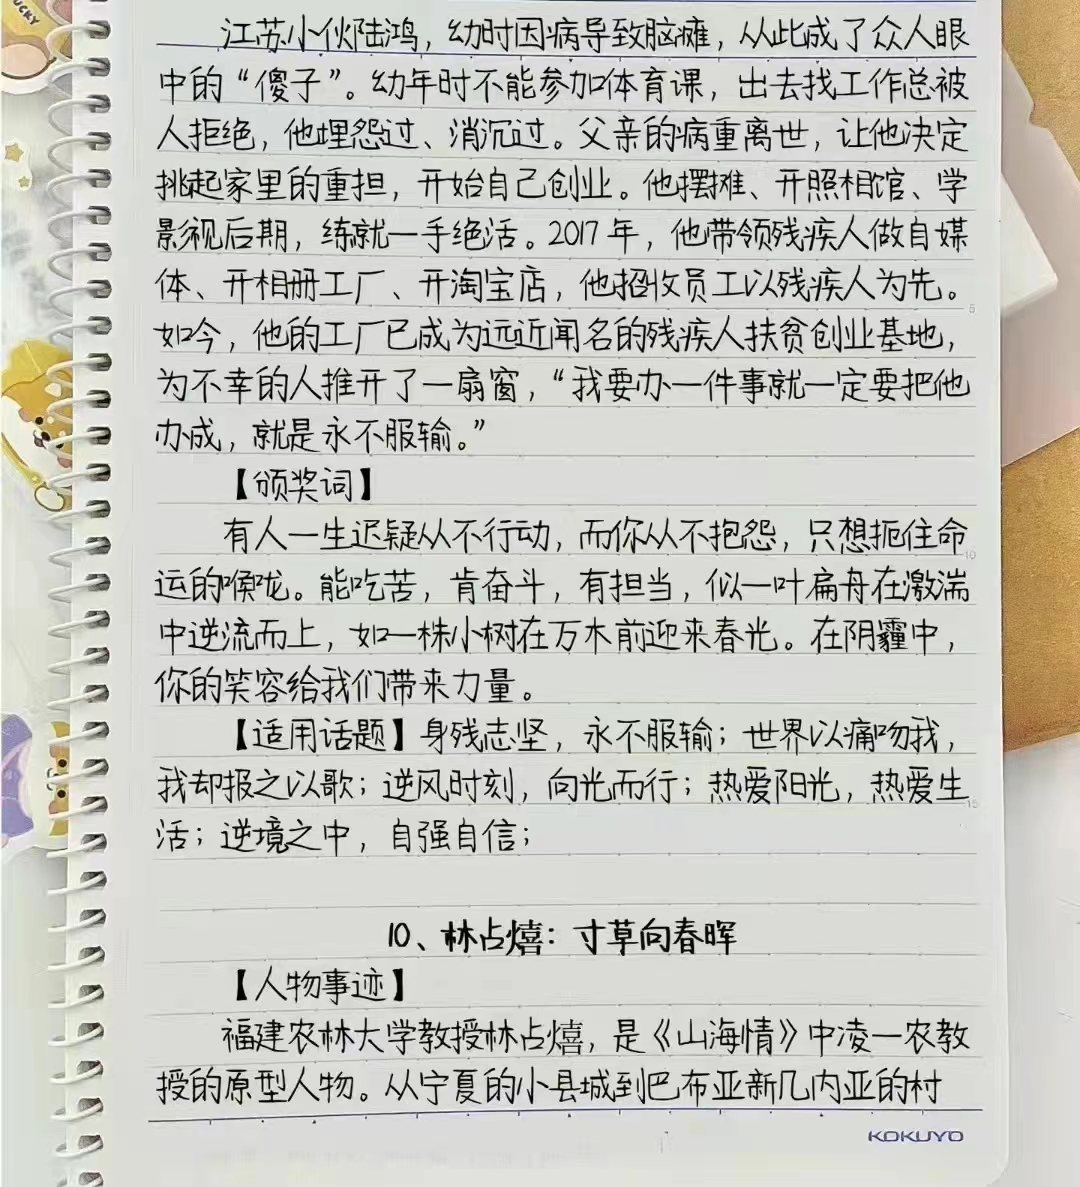 UCKY
江苏小伙陆鸿，幼时因病导致脑瘫，从此成了众人眼
中的“傻子”。幼年时不能参加体育课，出去找工作总被
人拒绝，他埋怨过、消沉过。父亲的病重离世，让他决定
挑起家里的重担，开始自己创业。他摆摊、开照相馆、学
影视后期，练就一手绝活。2017年，他带领残疾人做自媒
体、开相册工厂、开淘宝店，他招收员工以残疾人为先。
如今，他的工厂已成为远近闻名的残疾人扶贫创业基地，
为不幸的人推开了一扇窗，“我要办一件事就一定要把他
办成，就是永不服输。”
【颁奖词】
有人一生迟疑从不行动，而你从不抱怨，只想扼住命
运的喉咙。能吃苦，肯奋斗，有担当，似一叶扁舟在激湍
中逆流而上，如一株小树在万木前迎来春光。在阴霾中，
你的笑容给我们带来力量。
【适用话题】身残志坚，永不服输；世界以痛吻我，
我却报之以歌；逆风时刻，向光而行；热爱阳光，热爱生
活；逆境之中，自强自信；
10、林占熺：寸草向春晖
【人物事迹】
福建农林大学教授林占熺，是《山海情》中凌一农教
授的原型人物。从宁夏的小县城到巴布亚新几内亚的村
KOKUYO
5
10
15